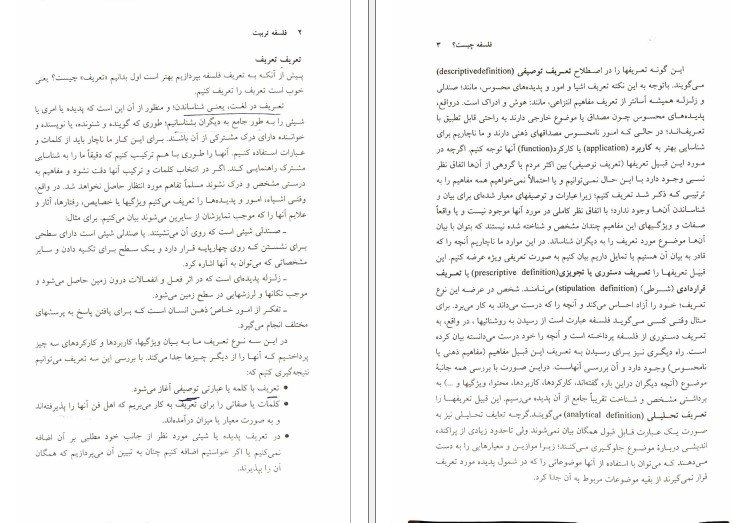 ۲   فلسفه تربیت
تعریف تعریف
پیش از آنکه به تعریف فلسفه بپردازیم بهتر است اول بدانیم «تعریف» چیست؟ یعنی
خوب است تعریف را تعریف کنیم.
تعریف در لغت، یعنی شناساندن؛ و منظور از آن این است که پدیده یا امری یا
شیئی را به طور جامع به دیگران بشناسانیم؛ طوری که گوینده و شنونده، یا نویسنده و
خواننده دارای درک مشترکی از آن باشند. برای این کار ما ناچار باید از کلمات و
عبارات استفاده کنیم. آنها را طوری با هم ترکیب کنیم که دقیقاً ما را به شناسائی
مشترک راهنمایی کند. اگر در انتخاب کلمات و ترکیب آنها دقت نشود و مفاهیم به
درستی مشخص و درک نشوند مسلماً تفاهم مورد انتظار حاصل نخواهد شد. در واقع،
وقتی اشیاء، امور و پدیده‌ها را تعریف می‌کنیم ویژگیها یا خصایص، رفتارها، آثار و
علایم آنها را که موجب تمایزشان از سایرین می‌شوند بیان می‌کنیم. برای مثال:
ـ صندلی شیئی است که روی آن می‌نشینند. یا صندلی شیئی است دارای سطحی
برای نشستن که روی چهارپایه قرار دارد و یک سطح برای تکیه دادن و سایر
مشخصاتی که می‌توان به آنها اشاره کرد.
ـ زلزله پدیده‌ای است که در اثر فعل و انفعالات درون زمین حاصل می‌شود و
موجب تکانها و لرزشهایی در سطح زمین می‌شود.
ـ تفکر از امور خاص ذهن انسان است که برای یافتن پاسخ به پرسشهای
مختلف انجام می‌گیرد.
در این سه نوع تعریف ما به بیان ویژگیها، کاربردها و کارکردهای سه چیز
پرداختیم که آنها را از دیگر چیزها جدا می‌کند. با بررسی این سه تعریف می‌توانیم
نتیجه‌گیری کنیم که:
• تعریف با کلمه یا عبارتی توصیفی آغاز می‌شود.
• کلمات یا صفاتی را برای تعریف به کار می‌بریم که اهل فن آنها را پذیرفته‌اند
و به صورت معیار یا میزان درآمده‌اند.
• در تعریف پدیده یا شیئی مورد نظر از جانب خود مطلبی بر آن اضافه
نمی‌کنیم یا اگر خواستیم اضافه کنیم چنان به تبیین آن می‌پردازیم که همگان
آن را بپذیرند.
فلسفه چیست؟   ۳
این گونه تعریفها را در اصطلاح تعریف توصیفی (descriptivedefinition)
می‌گویند. باتوجه به این نکته تعریف اشیا و امور و پدیده‌های محسوس، مانند؛ صندلی
و زلزله همیشه آسانتر از تعریف مفاهیم انتزاعی، مانند: هوش و ادراک است. درواقع،
پدیده‌های محسوس چون مصداق یا موضوع خارجی دارند به راحتی قابل تطبیق با
تعریف‌اند؛ در حالی که امور نامحسوس مصداقهای ذهنی دارند و ما ناچاریم برای
شناسایی بهتر به کاربرد (application) یا کارکرد(function) آنها توجه کنیم. اگرچه در
مورد این قبیل تعریفها (تعریف توصیفی) بین اکثر مردم یا گروهی از آن‌ها اتفاق نظر
نسبی وجود دارد با این حال نمی‌توانیم و یا احتمالاً نمی‌خواهیم همه مفاهیم را به
ترتیبی که ذکر شد تعریف کنیم؛ زیرا عبارات و توصیفهای معیار شده‌ای برای بیان و
شناساندن آن‌ها وجود ندارد؛ یا اتفاق نظر کاملی در مورد آنها موجود نیست و یا واقعاً
صفات و ویژگیهای این مفاهیم چندان مشخص و شناخته شده نیستند که بتوان با بیان
آن‌ها موضوع مورد تعریف را به دیگران شناساند. در این موارد ما ناچاریم آنچه را که
قادر به بیان آن هستیم یا تمایل داریم بیان کنیم به صورت تعریفی ویژه عرضه کنیم. این
قبیل تعریفها را تعریف دستوری یا تجویزی(prescriptive definition) یا تعریف
قراردادی (شرطی) (stipulation definition) می‌نامند. شخص در عرضه این نوع
تعریف؛ خود را آزاد احساس می‌کند و آنچه را که درست می‌داند به کار می‌برد. برای
مثال وقتی کسی می‌گوید فلسفه عبارت است از رسیدن به روشنائیها ، در واقع، به
تعریف دستوری از فلسفه پرداخته است و آنچه را خود درست می‌دانسته بیان کرده
است. راه دیگری نیز برای رسیدن به تعریف این قبیل مفاهیم (مفاهیم ذهنی یا
نامحسوس) وجود دارد و آن بررسی آنهاست. دراین صورت با بررسی همه جانبهٔ
موضوع (آنچه دیگران دراین باره گفته‌اند، کارکردها، کاربردها، محتوا، ویژگیها و ...) به
برداشتی مشخص و شناخت تقریباً جامع از آن پدیده می‌رسیم. این قبیل تعریفهــا را
تعریف تحلیلی (analytical definition) می‌گویند.گرچه تعایف تحلیلی نیز به
صورت یک عبارت قابل قبول همگان بیان نمی‌شوند ولی تاحدود زیادی از پراکنده
اندیشی دربارهٔ موضوع جلوگیری می‌کنند؛ زیرا موازین و معیارهایی را به دست
می‌دهند که می‌توان با استفاده از آنها موضوعاتی را که در شمول پدیده مورد تعریف
قرار نمی‌گیرند از بقیه موضوعات مربوط به آن جدا کرد.